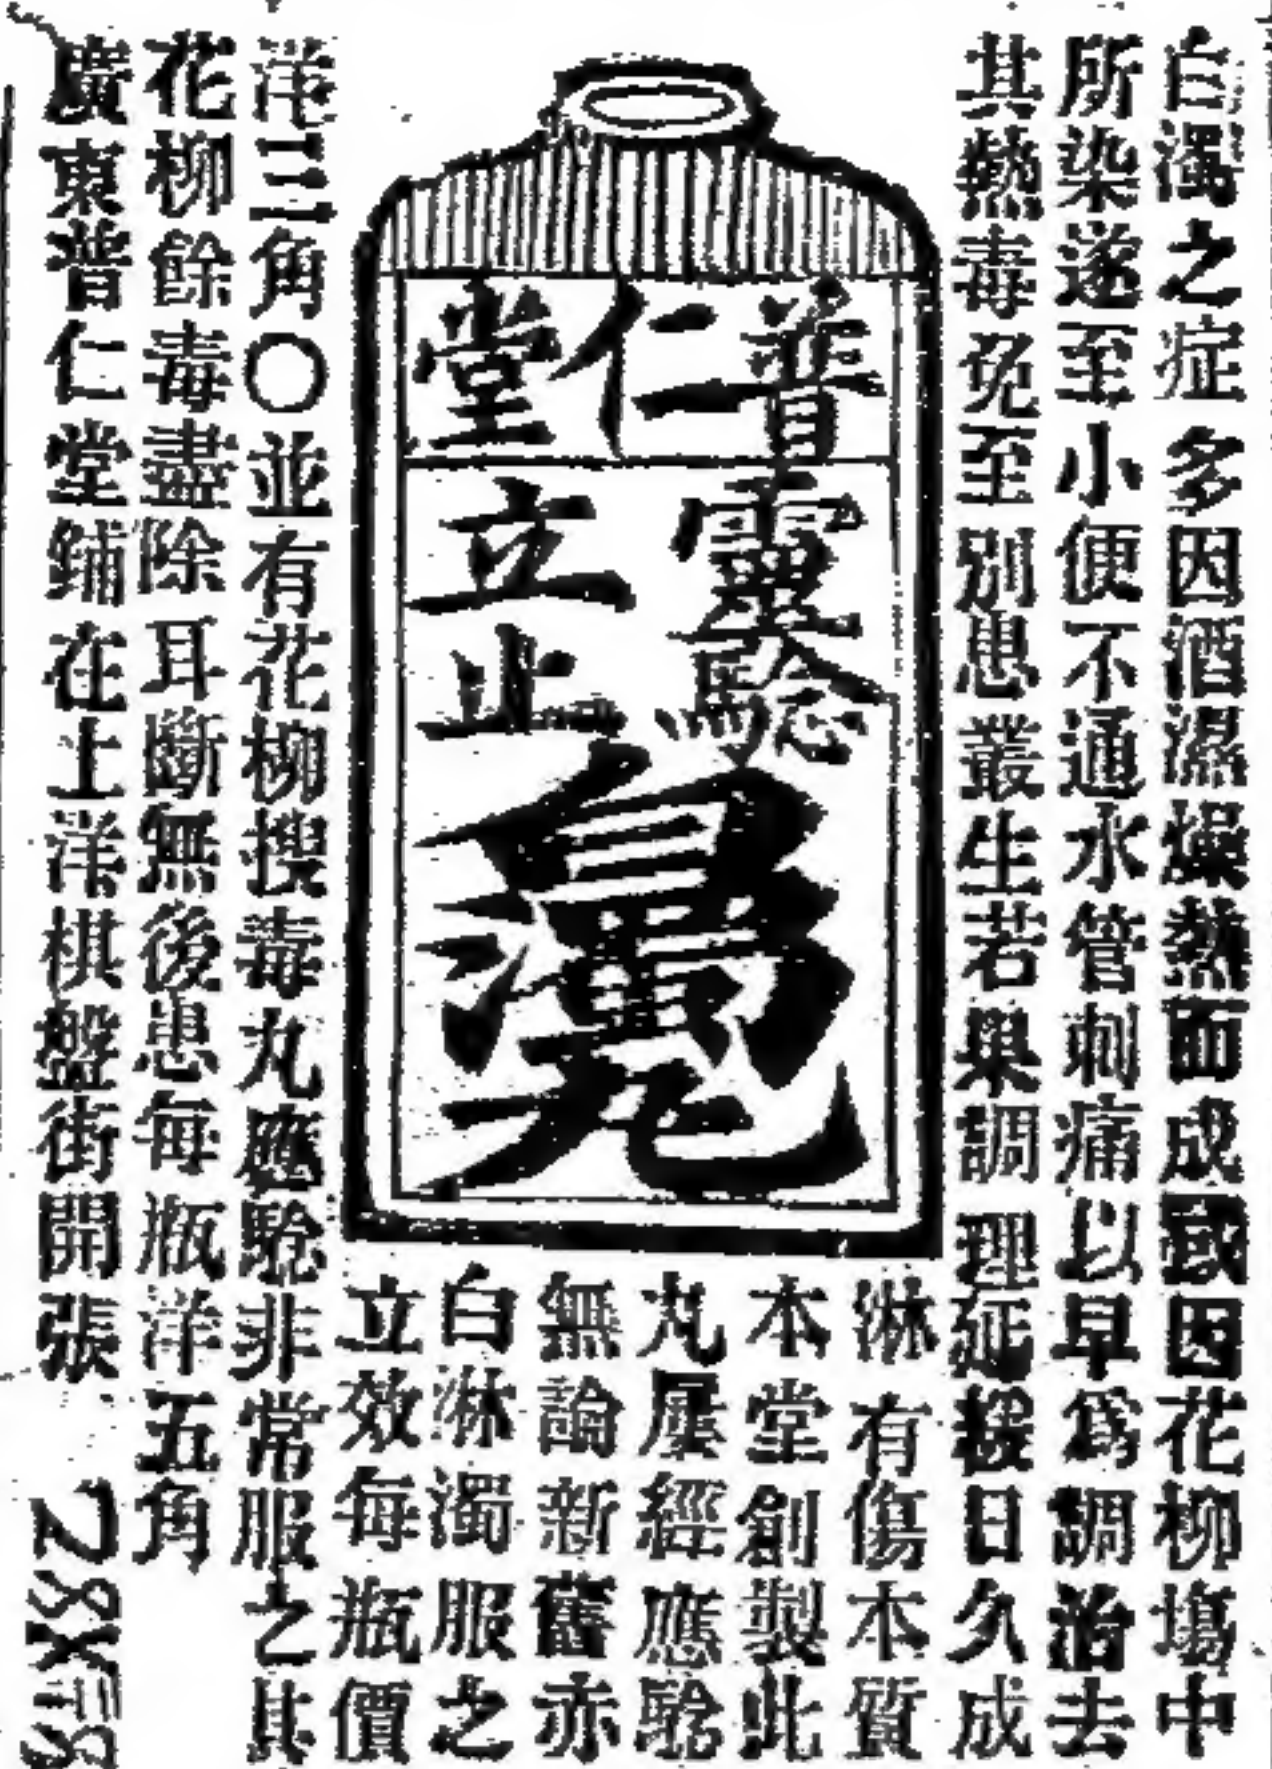 白濁之症多因酒濕燥熱而成或因花柳塲中
所染遂至小便不通水管刺痛以早爲調治去
其熱毒免至別患叢生若與調理延緩日久成
淋有傷本質
本堂創製此
丸屢經應驗
無論新舊赤
白淋濁服之
立效每瓶價
普仁堂
靈驗
立止
白濁丸
洋三角〇並有花柳搜毒丸應驗非常服之其
花柳餘毒盡除耳斷無後患每瓶洋五角
廣東普仁堂鋪在上洋棋盤街開張